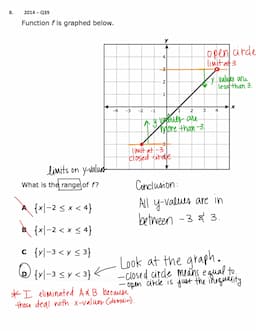 8. 2014 – Q35
Function f is graphed below.
y
open circle
limit at 3
y values are
less than 3.
-4 -3 -2 -1
x
y values are
more than -3.
limit at -3
closed circle
limits on y-values
What is the range of f?
Conclusion:
All y-values are in
between -3 & 3.
A {x|-2 ≤ x < 4}
B {x|-2 < x ≤ 4}
C {y|-3 < y ≤ 3}
D {y|-3 ≤ y < 3}
Look at the graph.
- closed circle means equal to
- open circle is just the inequality
* I eliminated A & B because
these deal with x-values (domain).